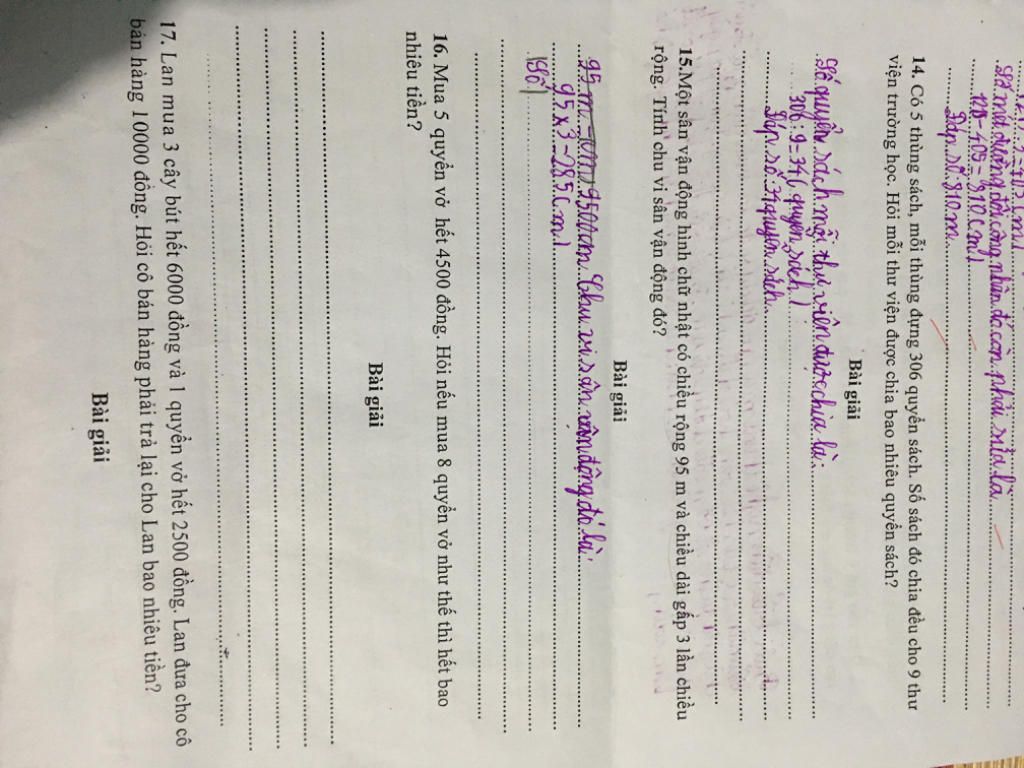 Số mét đường đội công nhân đó còn phải sửa là
1215 - 405 = 810 (m)
Đáp số: 810 m
14. Có 5 thùng sách, mỗi thùng đựng 306 quyển sách. Số sách đó chia đều cho 9 thư
viện trường học. Hỏi mỗi thư viện được chia bao nhiêu quyển sách?
Bài giải
Số quyển sách mỗi thư viện được chia là:
306 : 9 = 34 (quyển sách)
Đáp số: 34 quyển sách.
15.Một sân vận động hình chữ nhật có chiều rộng 95 m và chiều dài gấp 3 lần chiều
rộng. Tính chu vi sân vận động đó?
Bài giải
95 m = 9500cm Chu vi sân vận động đó là
95 x 3 = 285 (m)
16. Mua 5 quyển vở hết 4500 đồng. Hỏi nếu mua 8 quyển vở như thế thì hết bao
nhiêu tiền?
Bài giải
17. Lan mua 3 cây bút hết 6000 đồng và 1 quyển vở hết 2500 đồng. Lan đưa cho cô
bán hàng 10000 đồng. Hỏi cô bán hàng phải trả lại cho Lan bao nhiêu tiền?
Bài giải